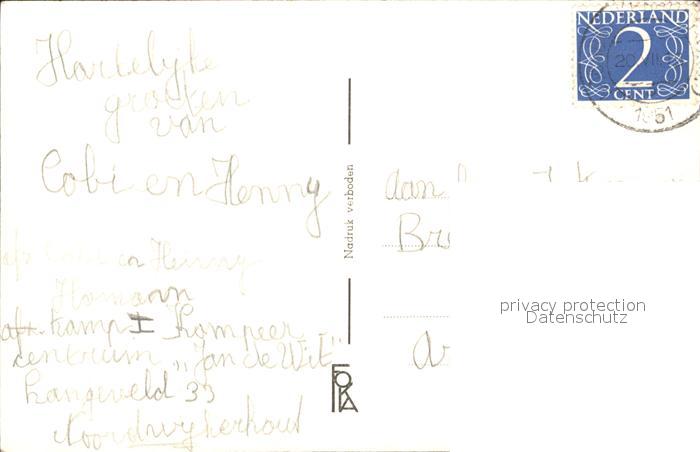 Hartelijke
groeten
van
Cobi en Henny
afz Cobi en Henny
Homann
afz. kamp I Kampeer
centrum „Jan de Wit"
Langeveld 33
Noordwijkerhout
Nadruk verboden
FOKA
NEDERLAND
2
CENT
20 VII
1951
aan
Br
privacy protection
Datenschutz